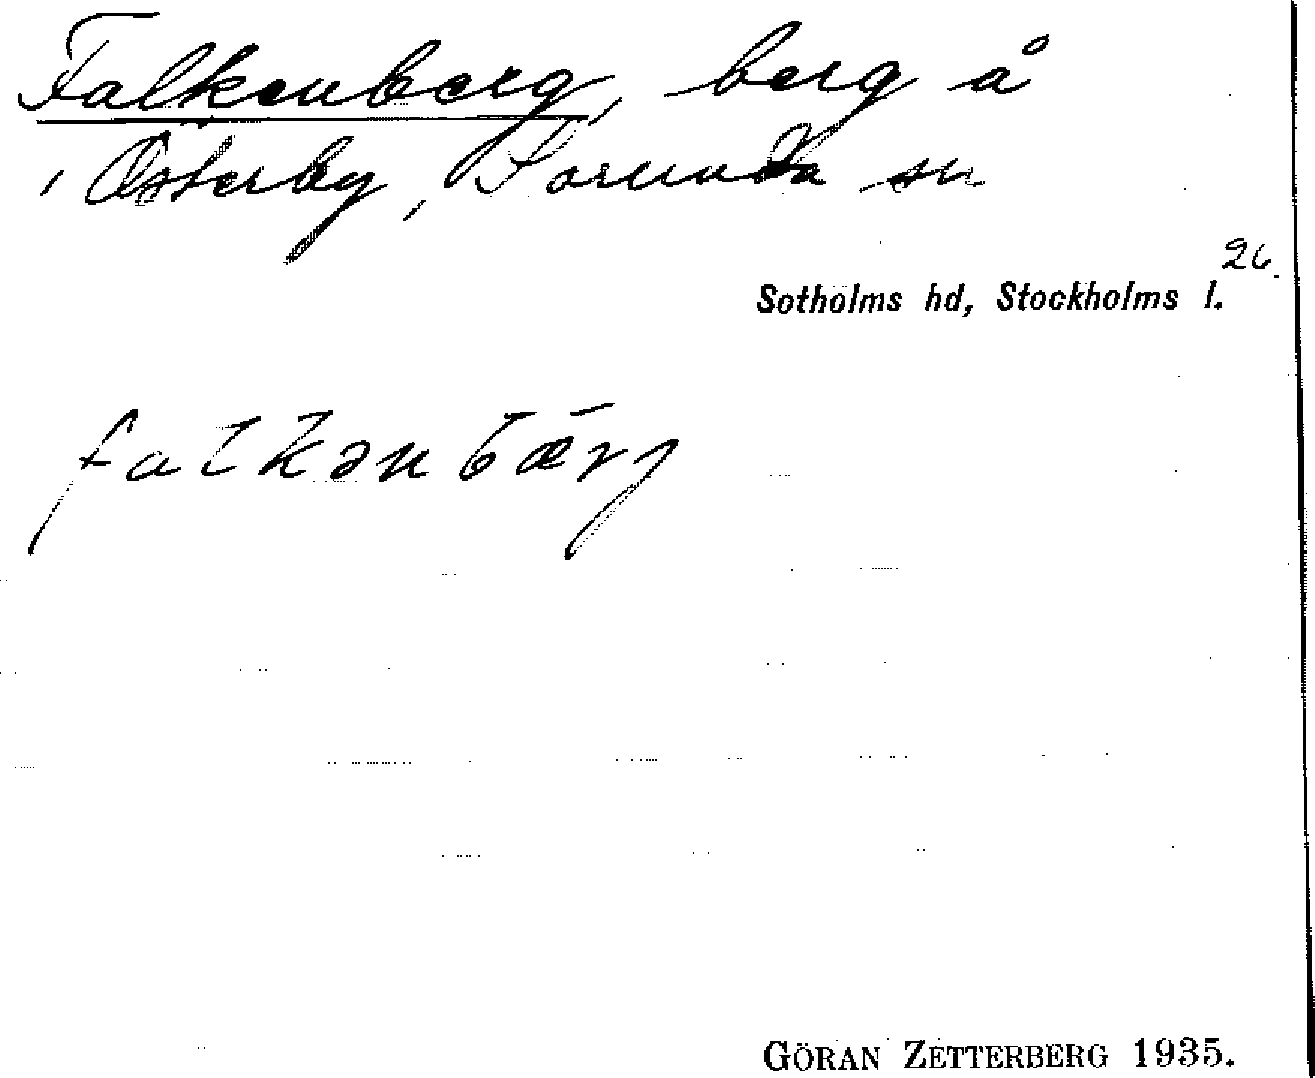 Falkenberg, berg å
, Österby, Sorunda sn
26.
Sotholms hd, Stockholms l.
falkənbærj
GÖRAN ZETTERBERG 1935.